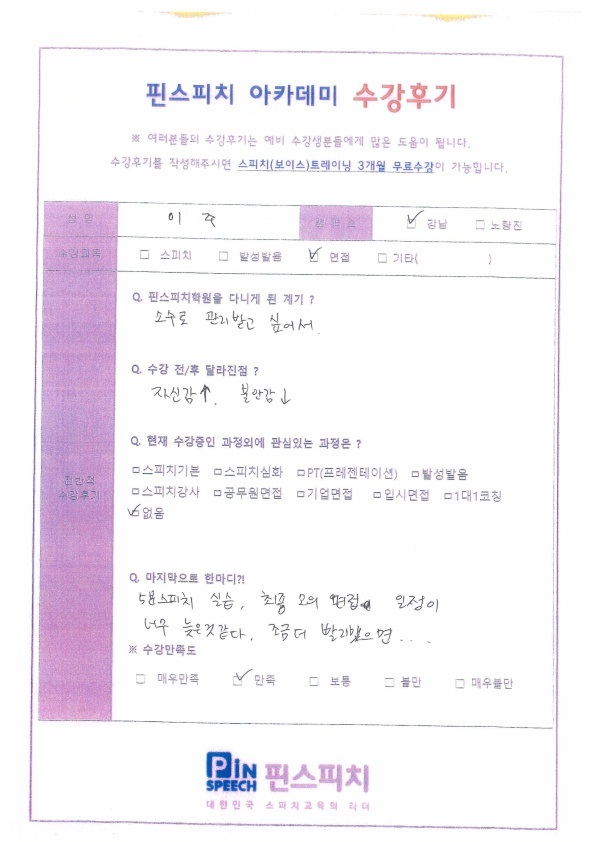 핀스피치 아카데미 수강후기
※ 여러분들의 수강후기는 예비 수강생분들에게 많은 도움이 됩니다.
수강후기를 작성해주시면 스피치(보이스)트레이닝 3개월 무료수강이 가능합니다.
성 명 이 주 캠퍼스 ☑ 강남 □ 노량진
수강과목 □ 스피치 □ 발성발음 ☑ 면접 □ 기타( )
Q. 핀스피치학원을 다니게 된 계기 ?
소수로 관리받고 싶어서.
Q. 수강 전/후 달라진점 ?
자신감↑. 불안감↓
Q. 현재 수강중인 과정외에 관심있는 과정은 ?
□스피치기본 □스피치심화 □PT(프레젠테이션) □발성발음
전반적 수강후기
□스피치강사 □공무원면접 □기업면접 □입시면접 □1대1코칭
☑없음
Q. 마지막으로 한마디?!
5분스피치 실습, 최종 모의 면접 일정이
너무 늦은것같다. 조금더 빨리했으면...
※ 수강만족도
□ 매우만족 ☑ 만족 □ 보통 □ 불만 □ 매우불만
PiN SPEECH 핀스피치
대한민국 스피치교육의 리더